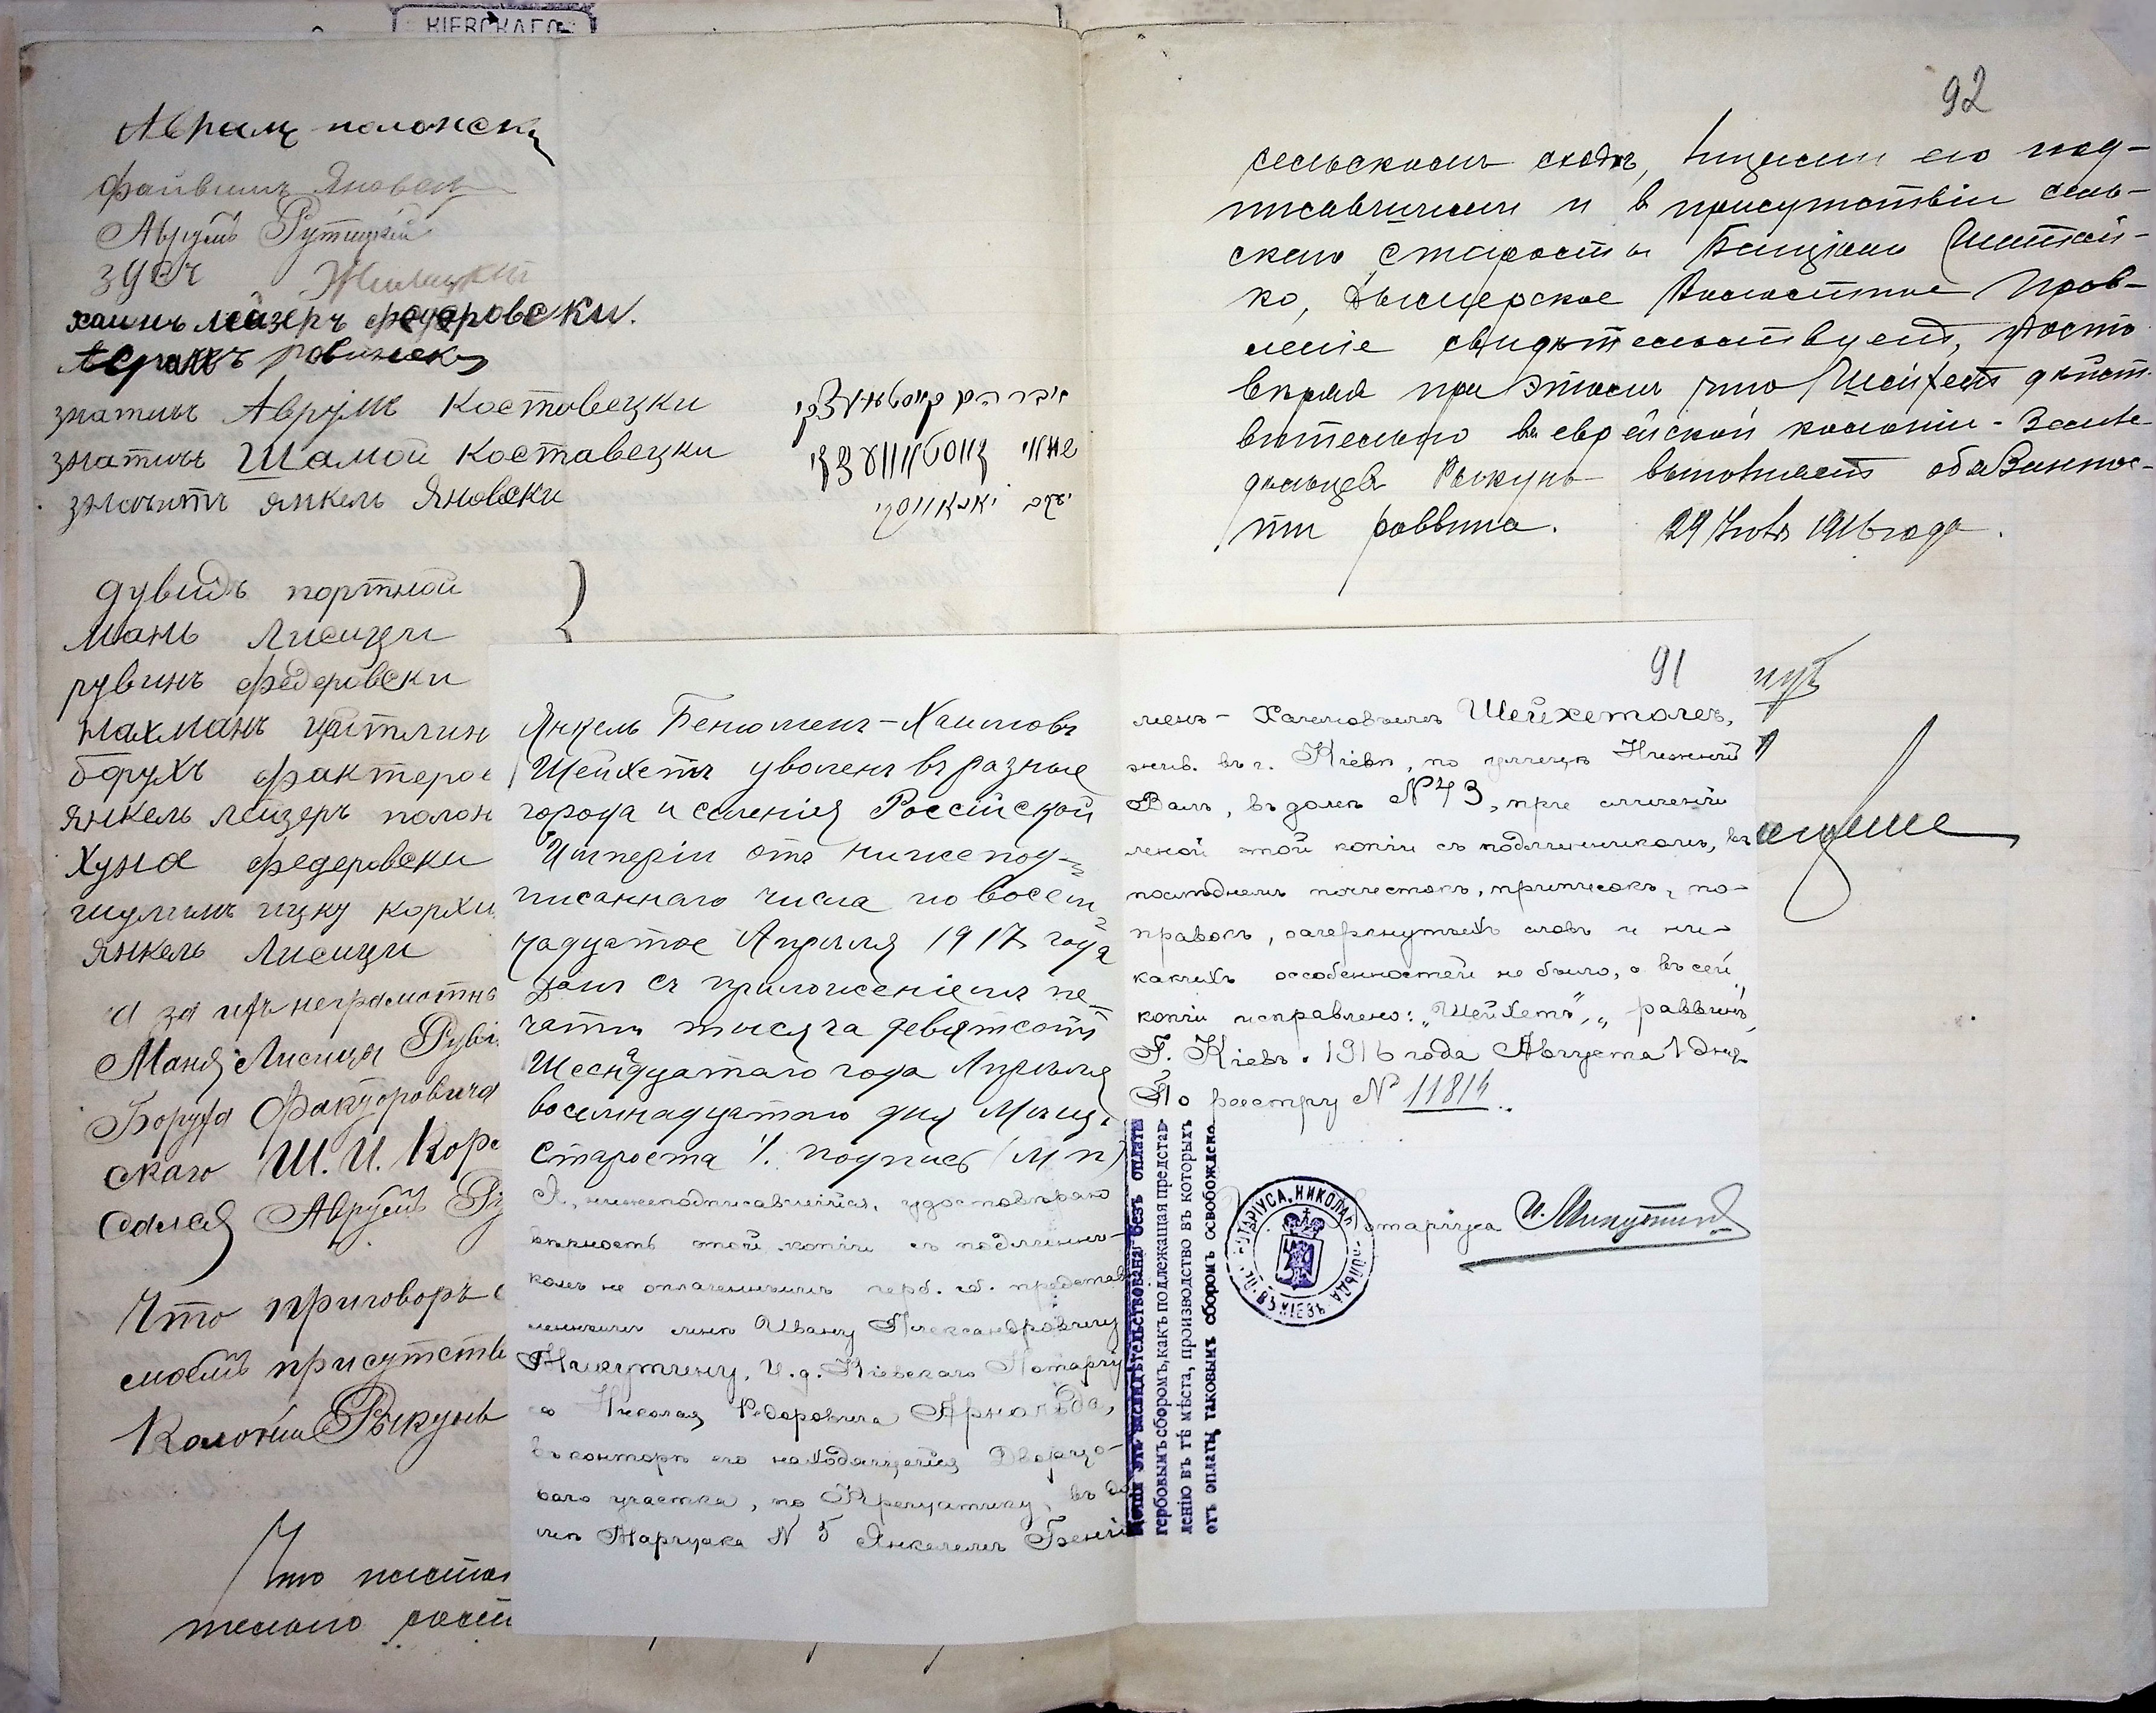 КІЕВСКАГО
Аврамъ полонски
Файвишъ Яновски
Аврумъ Рутицкій
Зусь Жилицкій
хаимъ лейзеръ федеровски.
Аврамъ ровински
значитъ Аврумъ Костовецки
значитъ Шамой Коставецки
значитъ янкель Яновски
дувидъ портной
мань Лисици
рувинъ федеровски
нахманъ цитлин
борухъ фактеров
янкель лейзеръ полон
Хуна федеровски
шулимъ ицку корхи
янкель Лисици
а за ихъ неграмотн
Маня Лисицы Руви
Боруха Факторовича
скаго Ш. И. Корс
самъ Аврумъ Ру
Что приговоръ с
моемъ присутстви
Колоніи Рыкунь
Что
92
сельскомъ сходѣ, лицами его под-
писавшими и в присутствіи сель-
скаго Старосты Шапай-
ко, Дымерское Волостное Прав-
леніе свидѣтельствуетъ, удосто
вѣряя при этомъ что Шейхетъ дѣйст-
вительно въ еврейской колоніи-Земле-
дельцев Рыкунь выполняетъ обязаннос-
ти раввина. 29 Іюля 1916 года.
91
Янкель Бенюмень-Хаимовъ
Шейхетъ уволенъ въ разные
города и селенія Россійской
Имперіи отъ нижепод-
писаннаго числа по восем-
надцатое Апрѣля 1917 года
Данъ съ приложеніемъ пе-
чати тысяча девятсотъ
Шеснадцатаго года Апрѣля
восемнадцатаго дня Мѣщ.
Староста /. подпись (М п)
Я, нижеподписавшійся, удостовѣряю
вѣрность этой копіи съ подлинни-
комъ не оплаченнымъ герб. сб. представ
леннымъ мнѣ Ивану Александровичу
Микутину, И. д. Кіевскаго Нотаріу
са Николая Федоровича Арнольда,
въ конторѣ его находящейся Дворцо-
ваго участка, по Крещатику, въ до
мѣ Марчука N 5 Янкелемъ Бенію
менъ-Хаимовымъ Шейхетомъ,
жив. въ г. Кіевѣ, по улицѣ Нижній
Валъ, въ домѣ № 43, при сличеніи
мной этой копіи съ подлинникомъ, въ
послѣднемъ почистокъ, приписокъ, по-
правокъ, зачеркнутыхъ словъ и ни-
какихъ особенностей не было, а въ сей
копіи исправлено: „Шейхетъ", „раввинъ
Г. Кіевъ. 1916 года Августа 1 дня
По реестру № 11814.
Нотаріуса И. Микутинъ
НОТАРІУСА, НИКОЛАЯ АРНОЛЬДА ВЪ КІЕВѢ
Копія эта засвидѣтельствована безъ оплаты
гербовымъ сборомъ, какъ подлежащая представ-
ленію въ тѣ мѣста, производство въ которыхъ
отъ оплаты таковымъ сборомъ освобождено